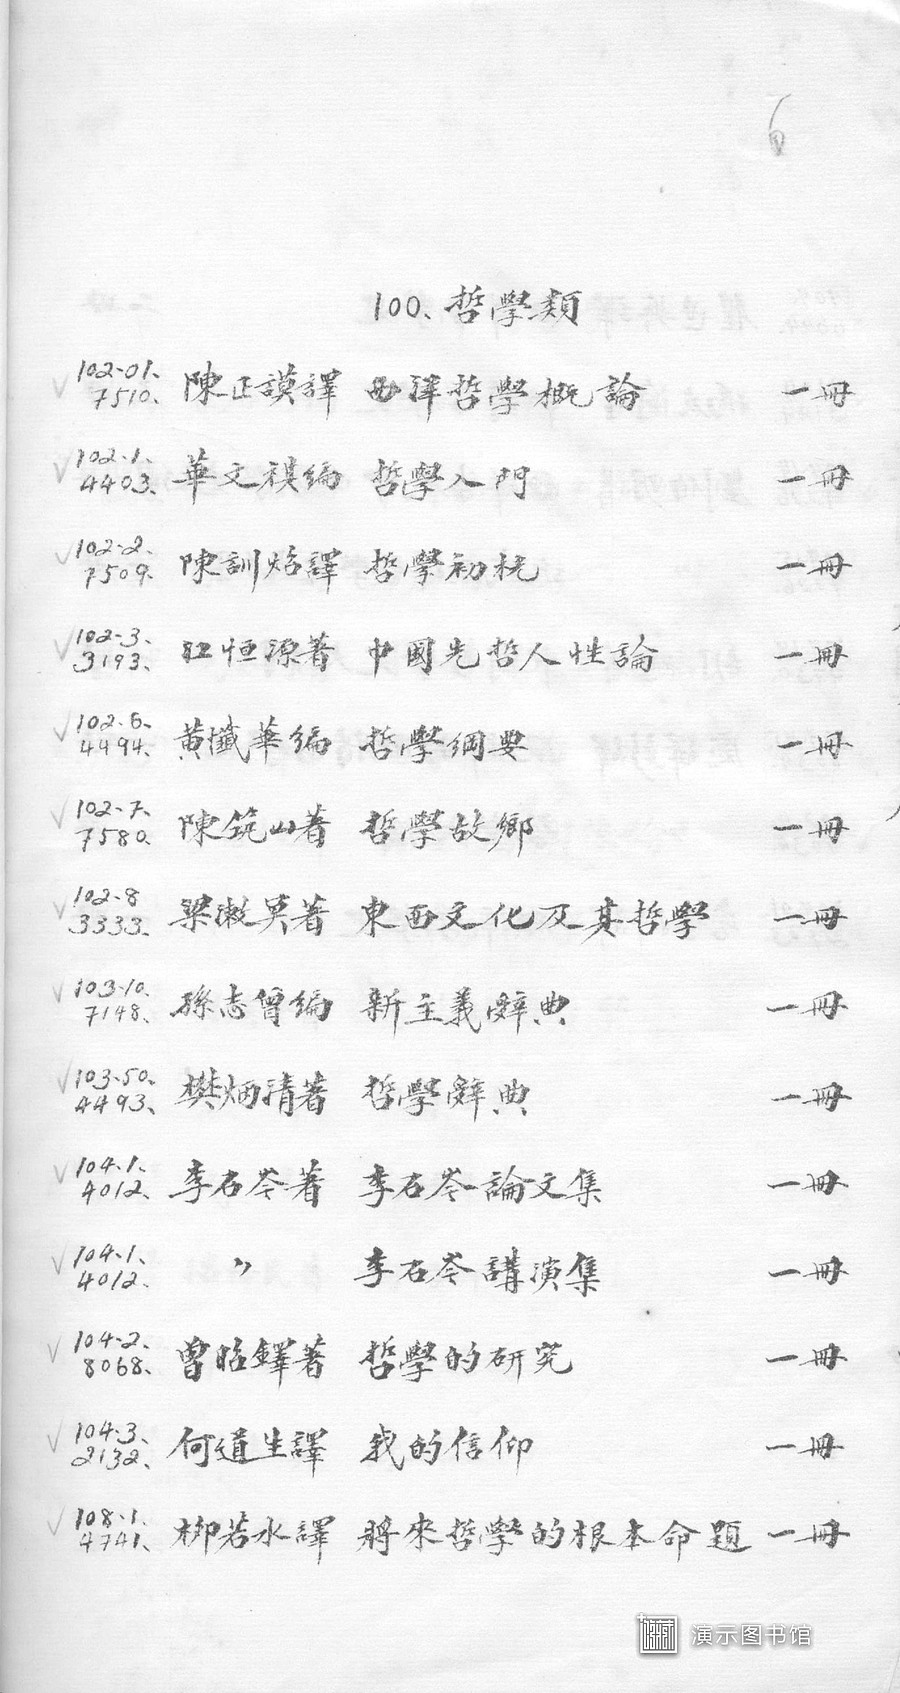 100、哲學類
102-01、
7510、 陳正謨譯 西洋哲學概論 一冊
102-1、
4403、 華文祺編 哲學入門 一冊
102-2、
7509、 陳訓炤譯 哲學初桄 一冊
102-3、
3193、 江恒源著 中國先哲人性論 一冊
102-6、
4494、 黃懺華編 哲學綱要 一冊
102-7、
7580、 陳筑山著 哲學故鄉 一冊
102-8
3333、 梁漱冥著 東西文化及其哲學 一冊
103-10、
7148、 孫志曾編 新主義辭典 一冊
103-50、
4493、 樊炳清著 哲學辭典 一冊
104-1、
4012、 李石岑著 李石岑論文集 一冊
104-1、
4012、 〃 李石岑講演集 一冊
104-2、
8068、 曾昭鐸著 哲學的研究 一冊
104-3、
2132、 何道生譯 我的信仰 一冊
108-1、
4741、 柳若水譯 將來哲學的根本命題 一冊
演示图书馆